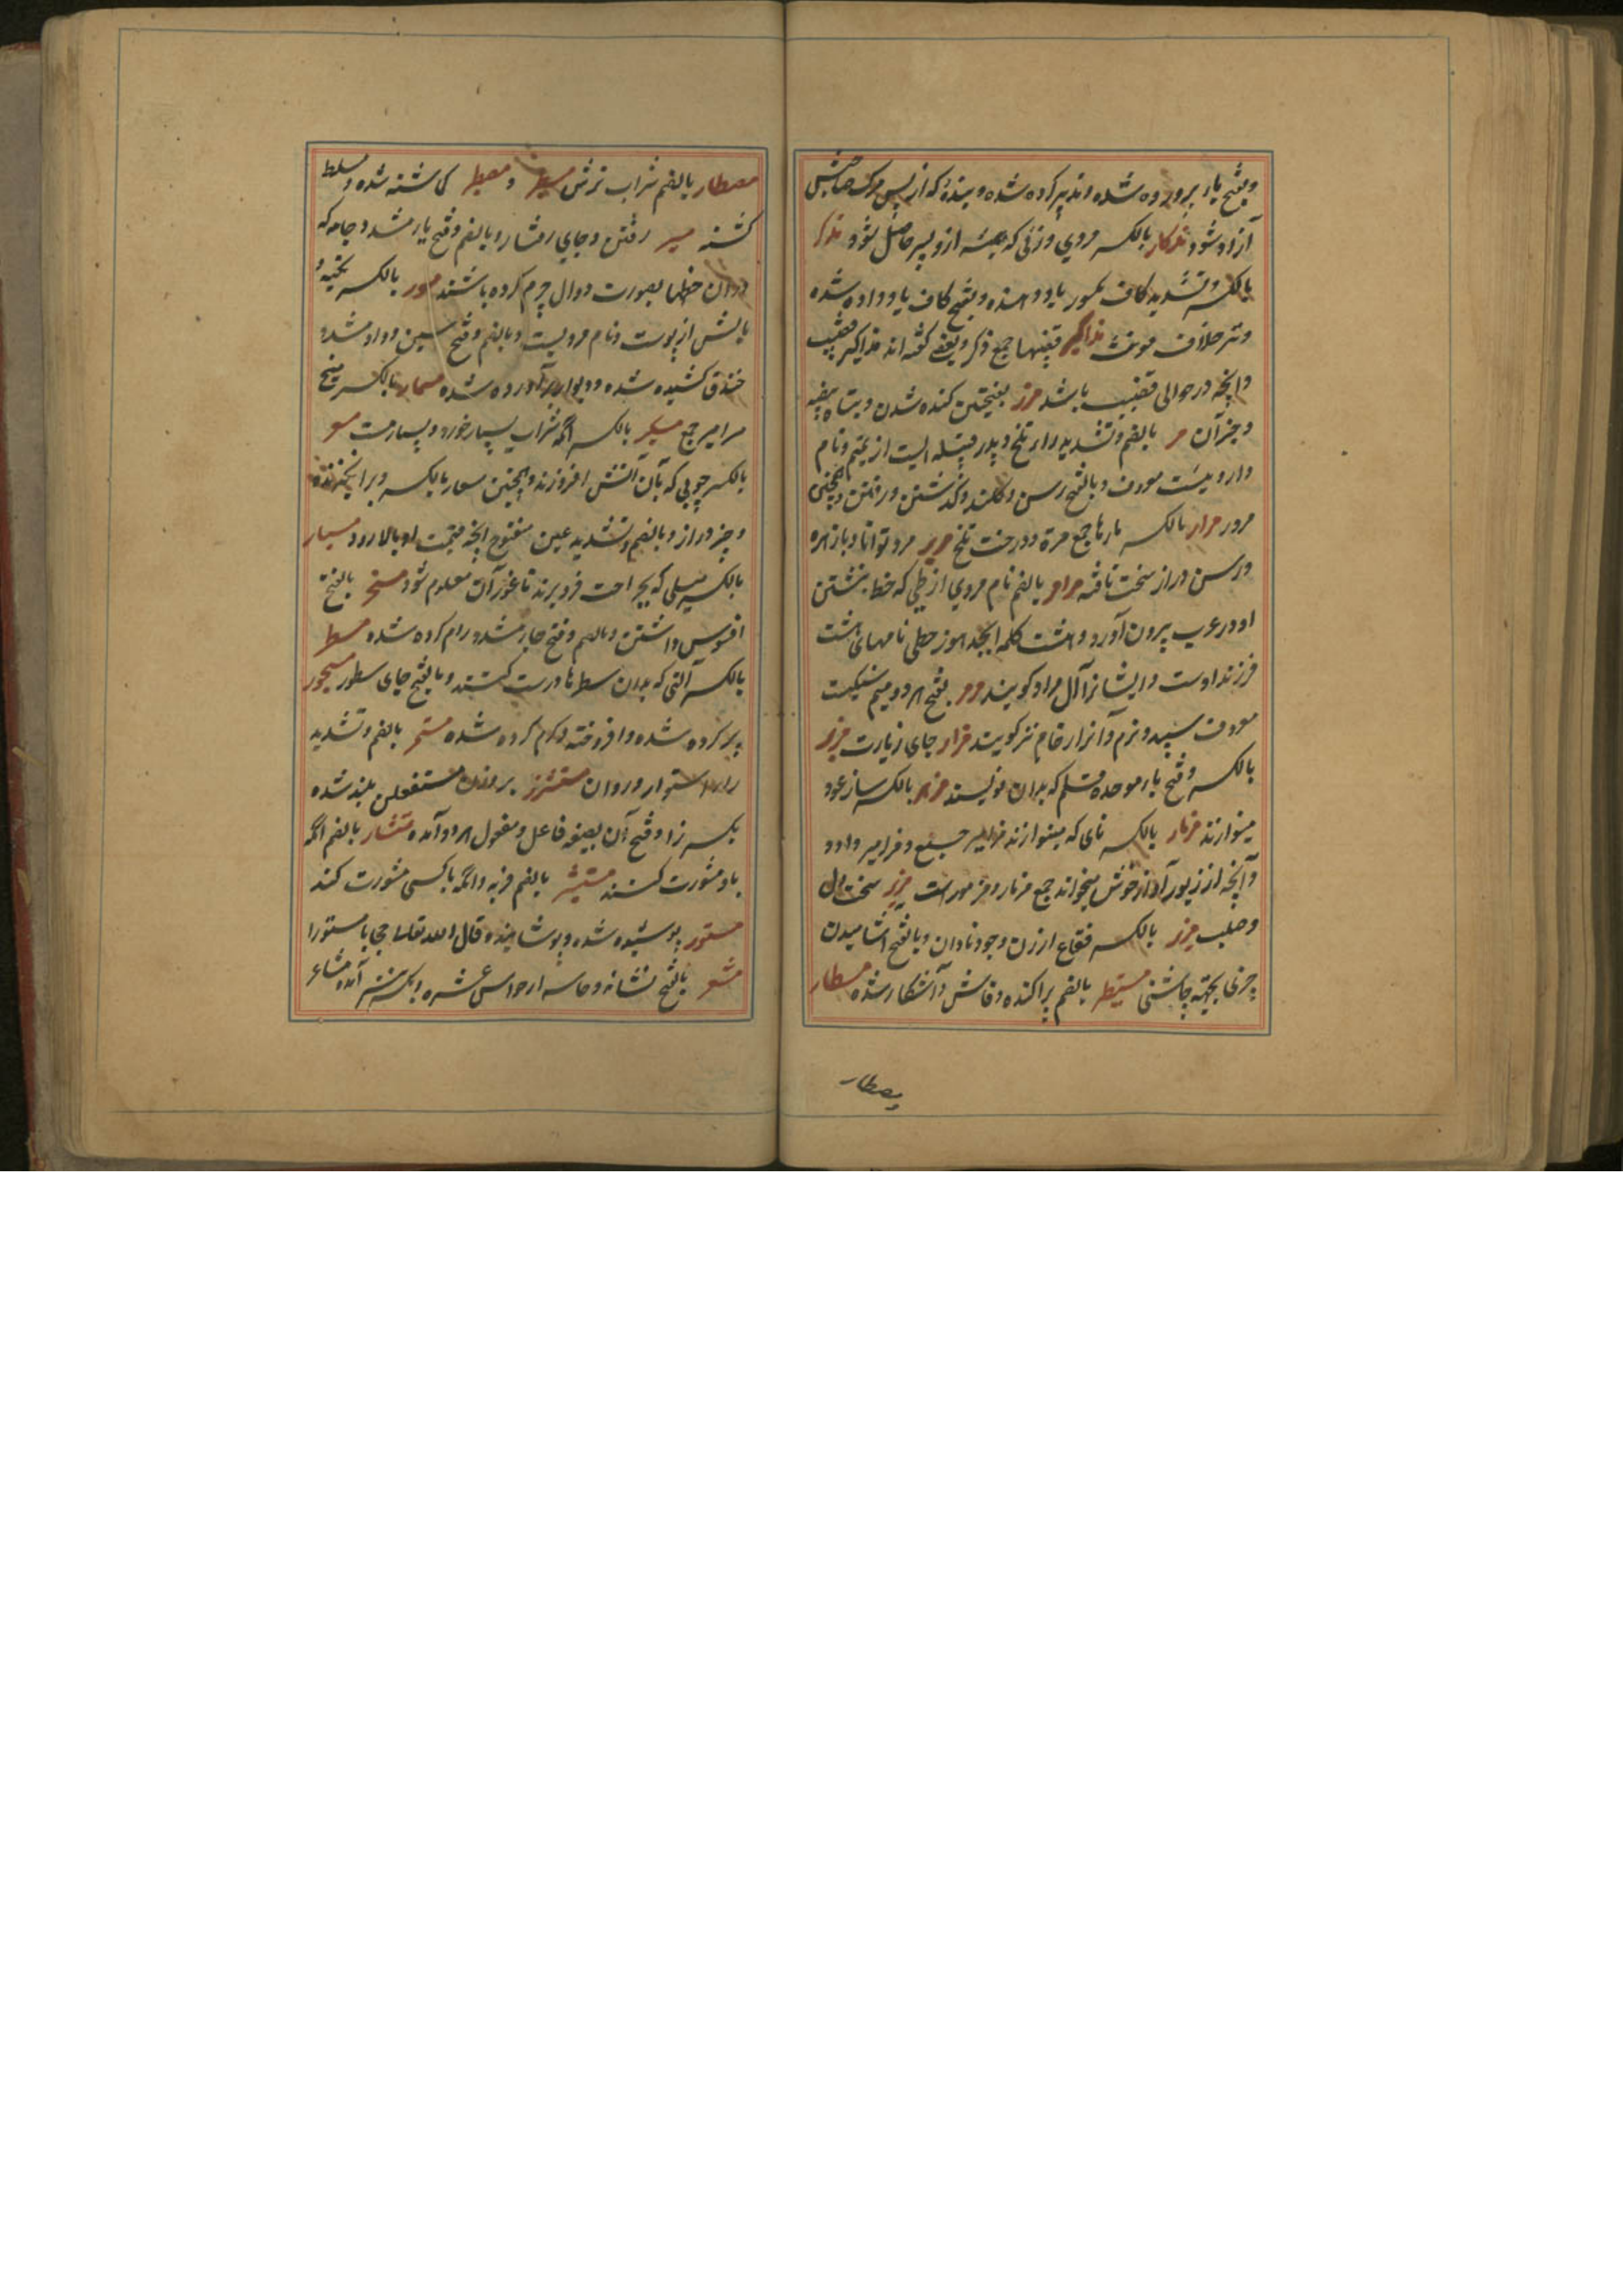 وبفتح باء پرورده شده و تدبیر کرده شده و بندهٔ که از پس مرک صاحبش
آزاد شود مذکار بالکسر مردی و زنی که همیشه ازو پسر حاصل شود مذکر
بالکسر و تشدید کاف مکسور یاد دهنده و بفتح کاف یاد داده شده
و نر خلاف مونث مذاکیر قضیبها جمع ذکر و بعضی گفته اند مذاکیر قضیب
و آنچه در حوالی قضیب باشد مزر بفتحتین کنده شدن و تباه بیضه
و جز آن مر بالضم و تشدید راء تلخ و پدر قبیله ایست از تمیم و نام
دارویست معروف و بالفتح رسن و کلند و گذشتن و رفتن و همچنین
مرور مرار بالکسر بارها جمع مرة و درخت تلخ مریر مرد توانا و با زهره
و رسن دراز سخت تافته مرامر بالضم نام مردی از طی که خط نبشتن
او در عرب بیرون آورد و هشت کلمه ابجد هوز حطی نامهای هشت
فرزند اوست و ایشانرا آل مرامر گویند مرمر بفتح هر دو میم سنگیست
معروف سپید و نرم و آنرا رخام نیز گویند مزار جای زیارت مزبر
بالکسر و فتح باء موحده قلم که بدان نویسند مزهر بالکسر ساز عود
مینوازند مزمار بالکسر نای که مینوازند مزامیر جمع و مزامیر داود
و آنچه از زبور آواز خوش میخواند جمع مزمار و مزمور است مزیر سخت دل
و صلب مزر بالکسر فقاع ارزن و جو و نادان و بالفتح آشامیدن
چیزی بجهة چاشنی مستطیر بالضم پراکنده و فاش و آشکار شده مسطار
مصطار بالضم شراب ترش مسیطر و مصیطر گماشته شده و مسلط
گشته مسیر رفتن و جای رفتار و بالضم و فتح یاء مشدد جامه که
در آن خطها بصورت دوال چرم کرده باشند مسور بالکسر تکیه و
بالش از پوست و نام مردیست و بالضم و فتح سین و واو مشدد
خندق کشیده شده و دیوار برآورده شده مسمار بالکسر میخ
مسامیر جمع مسکر بالکسر آنکه شراب بسیار خورد و بسیار مست مسعر
بالکسر چوبی که بآن آتش افروزند و همچنین مسعار بالکسر و برانگیزنده
و چیز دراز و بالضم و تشدید عین مفتوح آنچه قیمت او بالا رود مسبار
بالکسر میلی که بجراحت فرو برند تا غور آن معلوم شود مسخر بالفتح
افسوس داشتن و بالضم و فتح خاء مشدد رام کرده شده مسطر
بالکسر آلتی که بدان سطرها درست کشند و بالفتح جای سطور مسجور
پر کرده شده و افروخته و گرم کرده شده مستمر بالضم و تشدید
راء استوار و روان مستشزر بروزن مستفعلن بلند شده
بکسر زا و فتح آن بصیغه فاعل و مفعول هر دو آمده مستشار بالضم آنکه
با او مشورت کنند مستشیر بالضم فربه و آنکه با کسی مشورت کند
مستور پوشیده شده و پوشاننده قال الله تعالی حجابا مستورا
مشعر بالفتح نشانه و حاسه از حواس عشره و بکسر نیز آمده مشاعر
مصطار